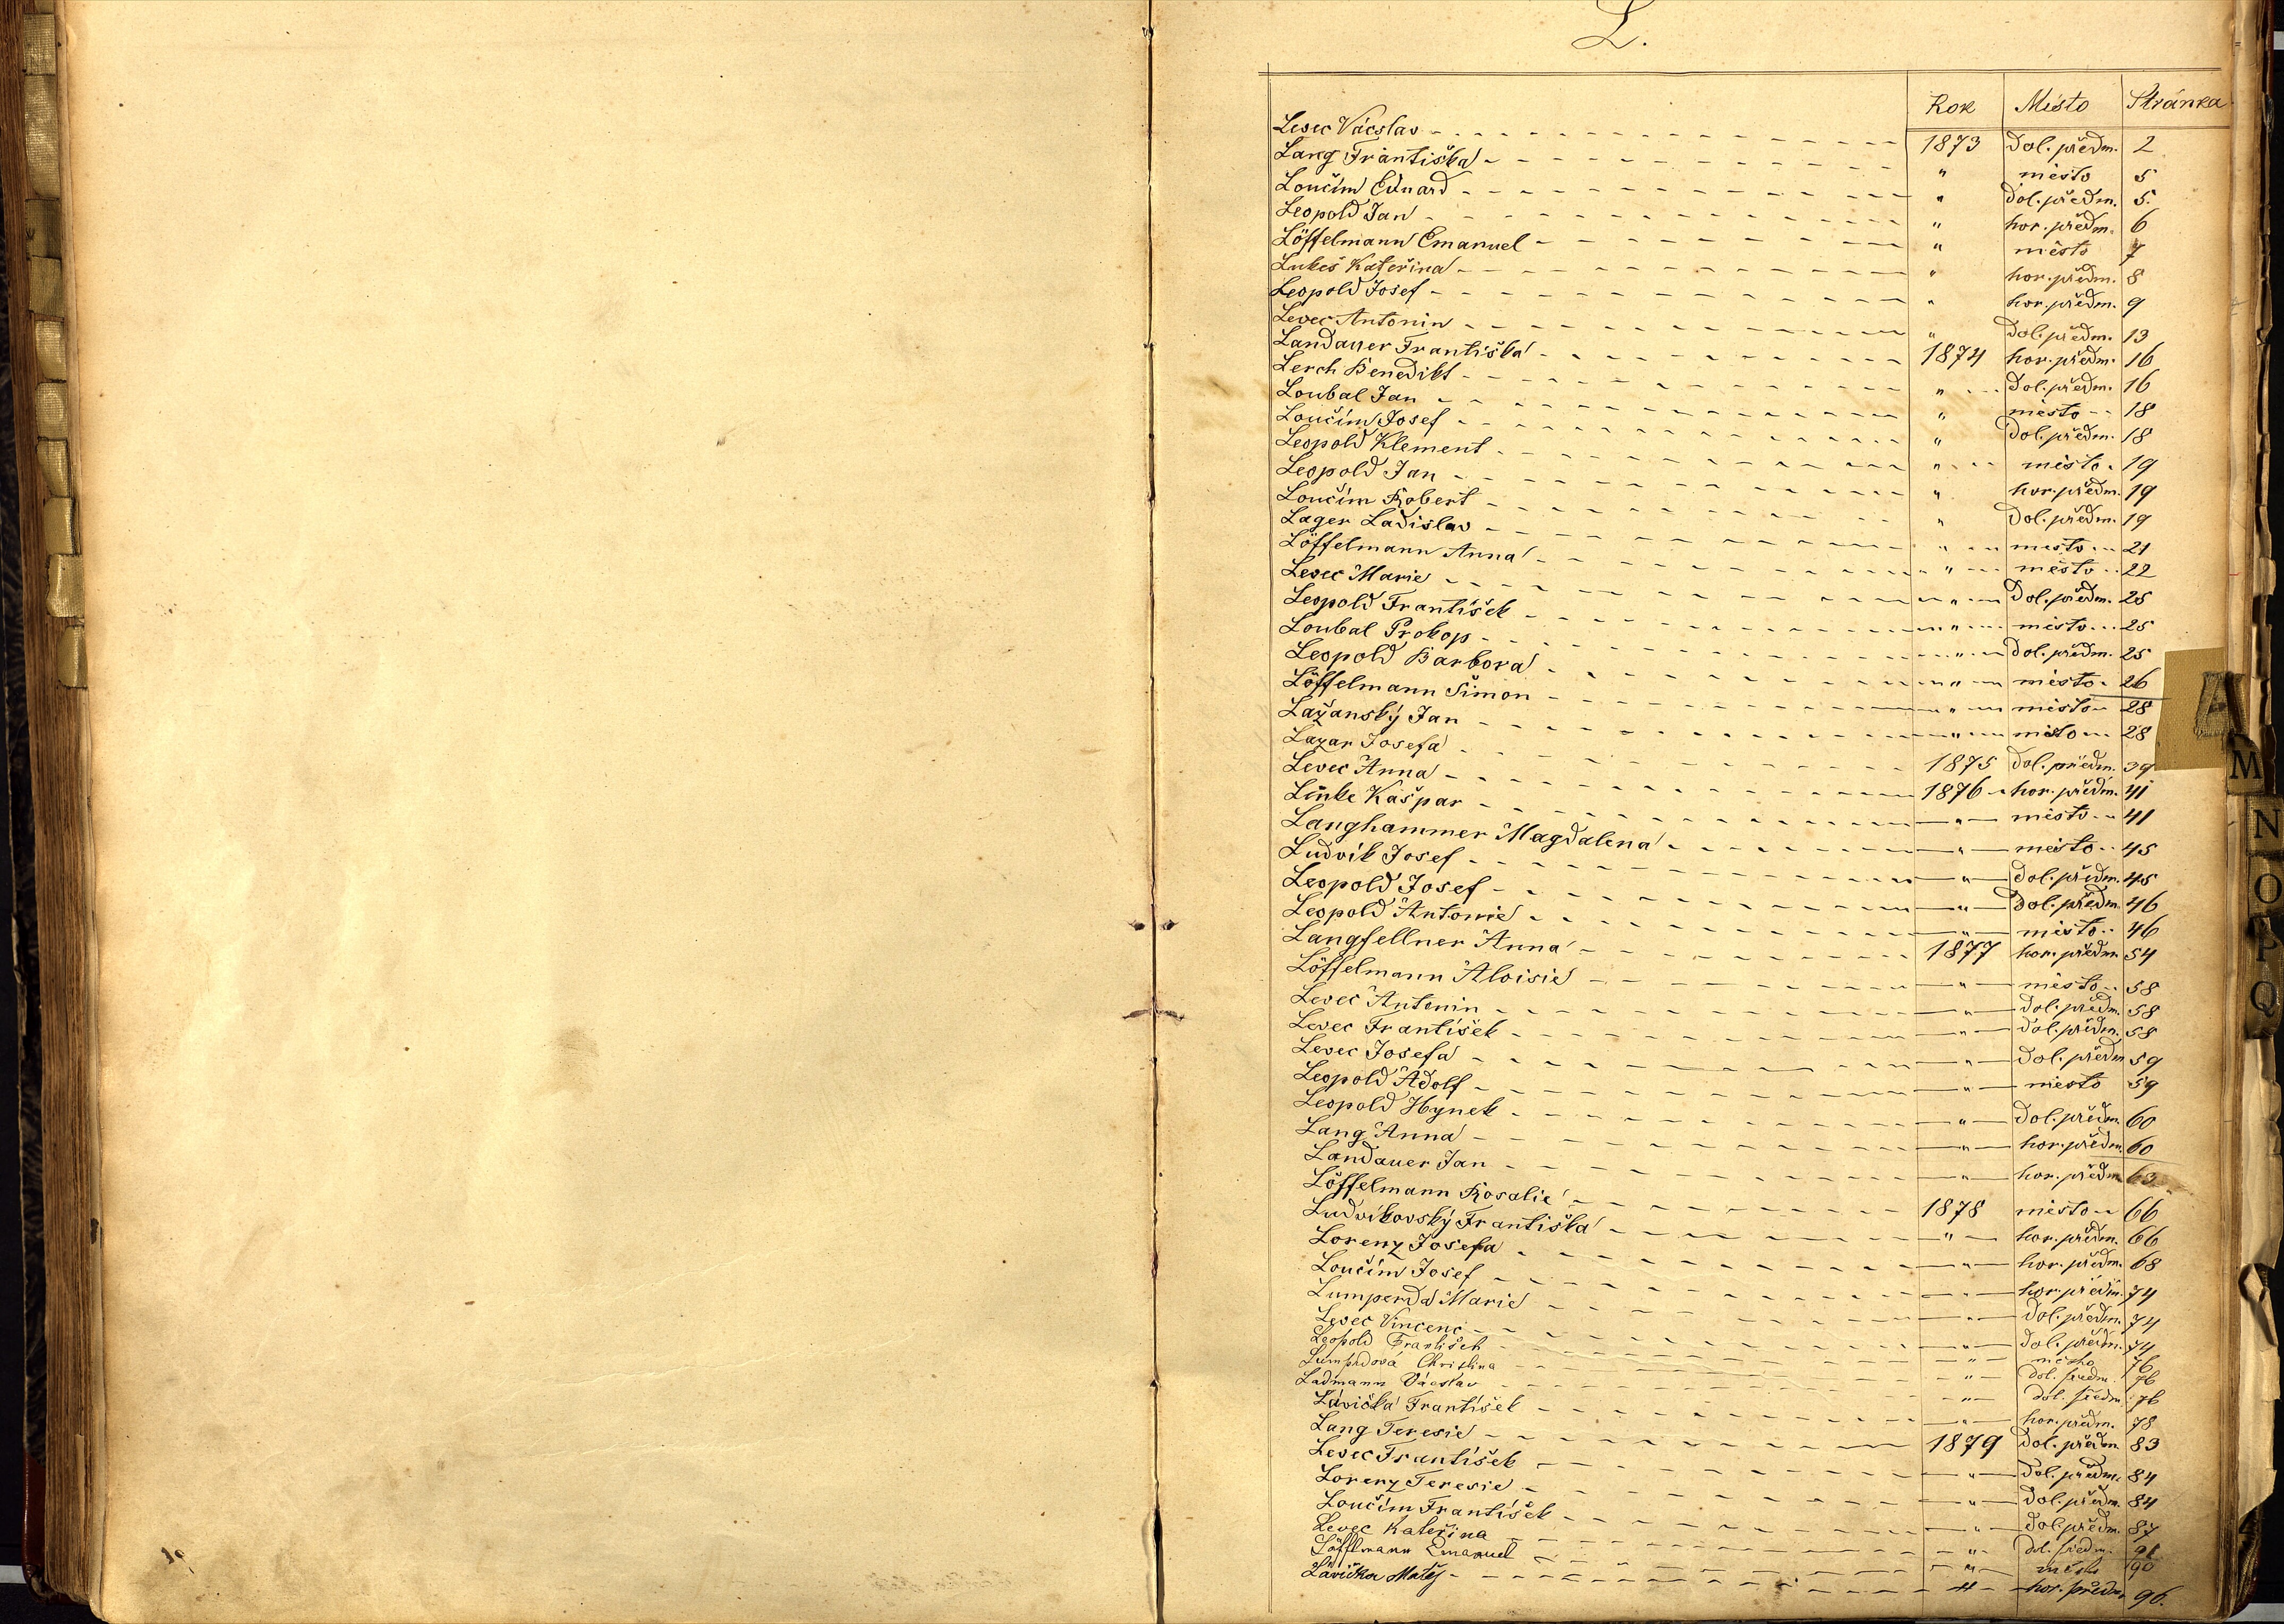 L.
Rok Místo Stránka
Levec Václav 1873 Dol. předm. 2
Lang Františka " město 5
Loučím Eduard " Dol. předm. 5.
Leopold Jan " hor. předm. 6
Löffelmann Emanuel " město 7
Lukeš Kateřina " hor. předm. 8
Leopold Josef " hor. předm. 9
Levec Antonin " Dol. předm. 13
Landauer Františka 1874 hor. předm. 16
Lerch Benedikt " Dol. předm. 16
Loubal Jan " město 18
Loučím Josef " Dol. předm. 18
Leopold Klement " město 19
Leopold Jan " hor. předm. 19
Loučím Robert " Dol. předm. 19
Lager Ladislav " město 21
Löffelmann Anna " město 22
Levec Marie " Dol. předm. 25
Leopold František " město 25
Loubal Prokop " Dol. předm. 25
Leopold Barbora " město 26
Löffelmann Šimon " město 28
Lažanský Jan " město 28
Lazar Josefa 1875 Dol. předm. 39
Levec Anna 1876 hor. předm. 41
Linke Kašpar " město 41
Langhammer Magdalena " město 45
Ludvík Josef " Dol. předm. 45
Leopold Josef " Dol. předm. 46
Leopold Antonie " město 46
Langfellner Anna 1877 hor. předm. 54
Löffelmann Aloisie " město 58
Levec Antonin " Dol. předm. 58
Levec František " Dol. předm. 58
Levec Josefa " Dol. předm 59
Leopold Adolf " město 59
Leopold Hynek " Dol. předm. 60
Lang Anna " hor. předm. 60
Landauer Jan " hor. předm 63
Löffelmann Rosalie 1878 město 66
Ludvíkovský Františka " hor. předm. 66
Lorenz Josefa " hor. předm. 68
Loučím Josef " hor. předm. 74
Lumperda Marie " Dol. předm. 74
Levec Vincenc " Dol. předm. 74
Leopold František " město 76
Lumprdová Christina " dol. předm. 76
Ladmann Václav " dol. předm 76
Lávička František " hor. předm. 78
Lang Teresie 1879 Dol. předm. 83
Levec František " Dol. předm. 84
Lorenz Teresie " Dol. předm. 84
Loučím František " Dol. předm. 87
Levec Kateřina " dol. předm. 91
Löfflmann Emanuel " město 90
Lavička Matěj " hor. předm. 96.
A
M
N
O
P
Q